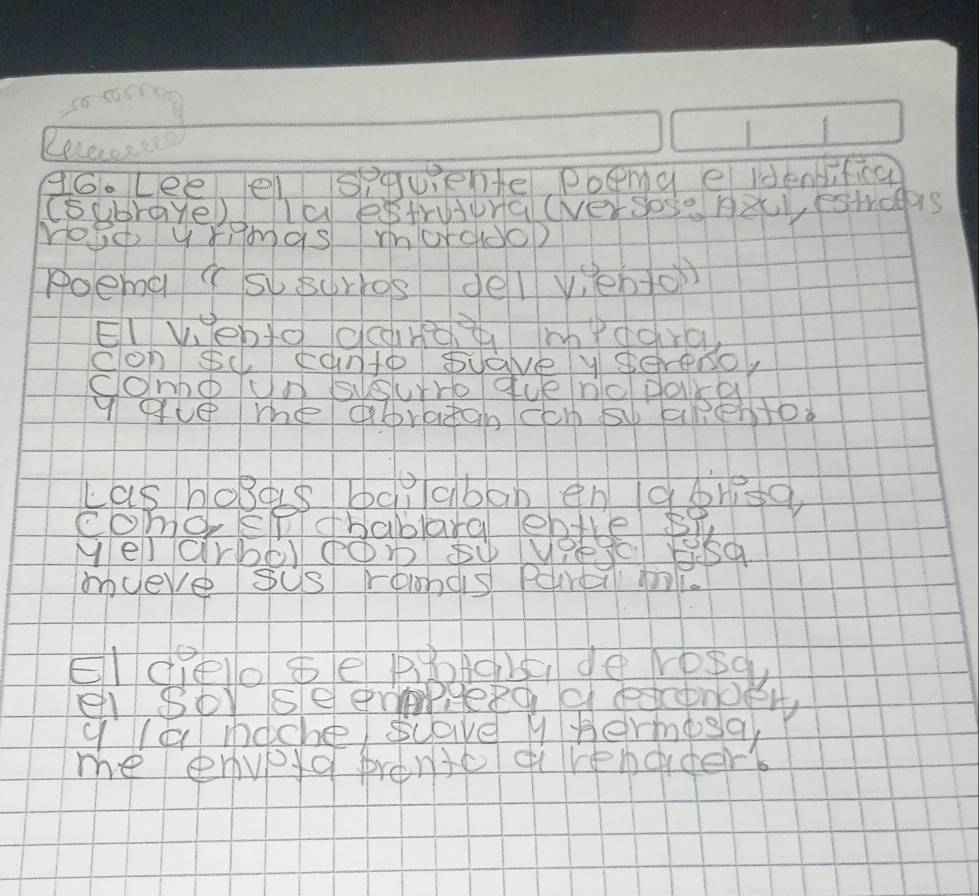 16. Lee el siguiente Poema e identifica
(subraye) la estrutura (versos: Azul, estrofas
rosa y rimas morado)
Poema "Susurros del viento"
El viento acaricia mi cara,
con su canto suave y sereno,
como un susurro que no para
y que me abrazan con su aliento.
Las hojas bailaban en la brisa,
como si hablara entre si,
y el arbol con su viejo risa
mueve sus ramas Para mi.
El cielo se pintaba de rosa,
el sol se empieza a esconder,
y la noche, suave y hermosa,
me envita pronto a renacer.